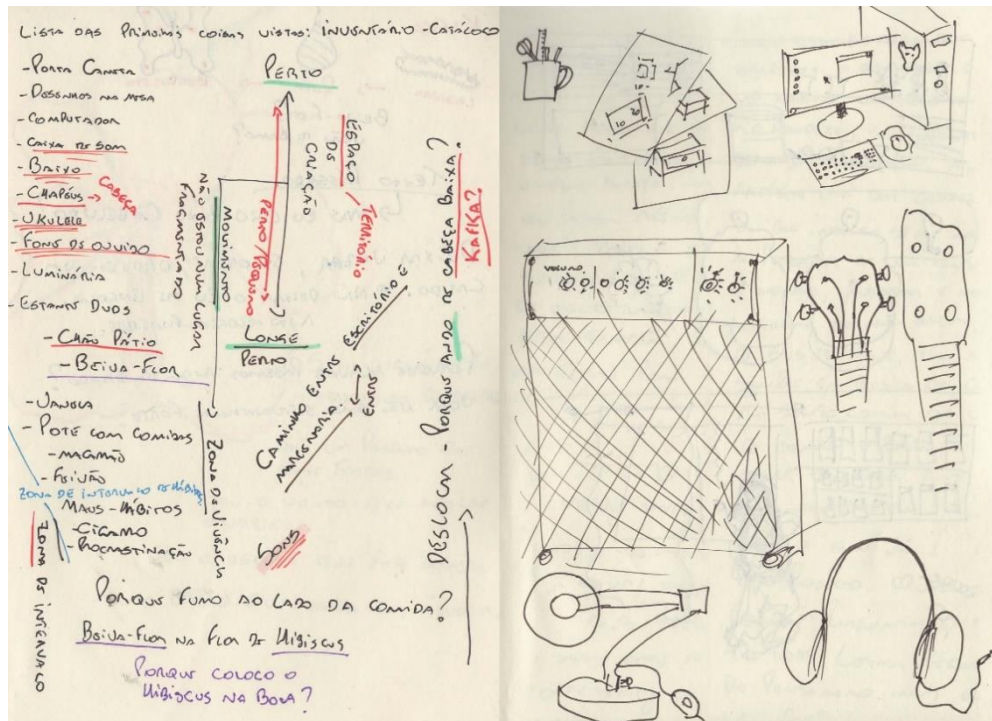 LISTA DAS PRIMEIRAS COISAS VISTAS: INVENTÁRIO - CATÁLOGO
- PORTA CANETA
- DESENHOS NA MESA
- COMPUTADOR
- CAIXA DE SOM
- BAIXO
- CHAPÉUS → CABEÇA
- UKULELE
- FONE DE OUVIDO
- LUMINÁRIA
- ESTANTE DUDS
- CHÃO PÁTIO
- BEIJA-FLOR
- JANELA
- POTE COM COMIDAS
- MACARRÃO
- FEIJÃO
ZONA DE INTERVALO DE HÁBITOS
MAUS-HÁBITOS
- CIGARRO
- PROCRASTINAÇÃO
ZONA DE INTERVALO
PERTO
ESPAÇO DE CRIAÇÃO
TERRITÓRIO
PERTO/PEQUENO
LONGE
PERTO
MOVIMENTO
NÃO ESTOU NUM LUGAR
FRAGMENTADO
ZONA DE VIVÊNCIA
CAMINHO ENTRE
MARCENARIA E
ESCRITÓRIO E
SONS
DESLOCAR - PORQUE ANDO DE CABEÇA BAIXA?
KAFKA?
PORQUE FUMO AO LADO DA COMIDA?
BEIJA-FLOR NA FLOR DE HIBISCUS
PORQUE COLOCO O
HIBISCUS NA BOCA?
VOLUME